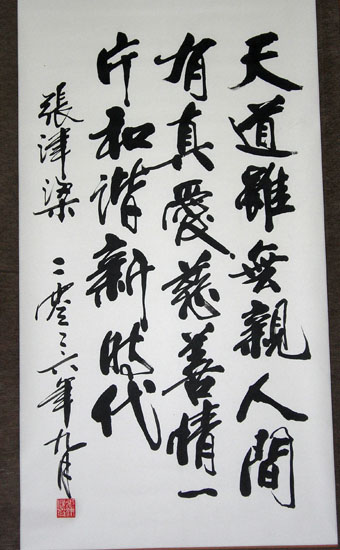 天道雖無親人間
有真愛慈善情一
片和谐新时代
張津梁 二零零六年九月